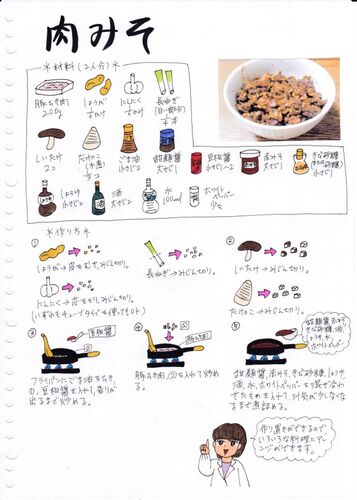 肉みそ
*材料(2人分)*
豚ひき肉
200g
しょうが
1かけ
にんにく
1かけ
長ねぎ
(白い部分)
しいたけ
2コ
たけのこ
(水煮)
ごま油
小さじ2
甜麺醤
大さじ1
豆板醤
小さじ1〜2
赤みそ
大さじ1
きび砂糖
しょうゆ
小さじ2
酒
大さじ1
水
100ml
ホワイト
ペッパー
少々
*作り方*
①
しょうが→皮をむき、みじん切り。
にんにく→芯をとり、みじん切り。
(いずれもチューブタイプを使ってもOK)
長ねぎ→みじん切り。
②
しいたけ→みじん切り。
たけのこ→みじん切り。
③
豆板醤
フライパンにごま油をひき、
①、豆板醤を入れて、香りが
出るまで炒める。
④
豚ひき肉、②を入れて炒める。
⑤
甜麺醤、赤みそ、
きび砂糖、酒、
しょうゆ、水、
ホワイトペッパー
甜麺醤、赤みそ、きび砂糖、しょうゆ、
酒、水、ホワイトペッパーを混ぜ合わ
せたものを入れて、汁気が少なくなる
まで煮詰める。
作り置きができるので
いろいろな料理にアレ
ンジができます。